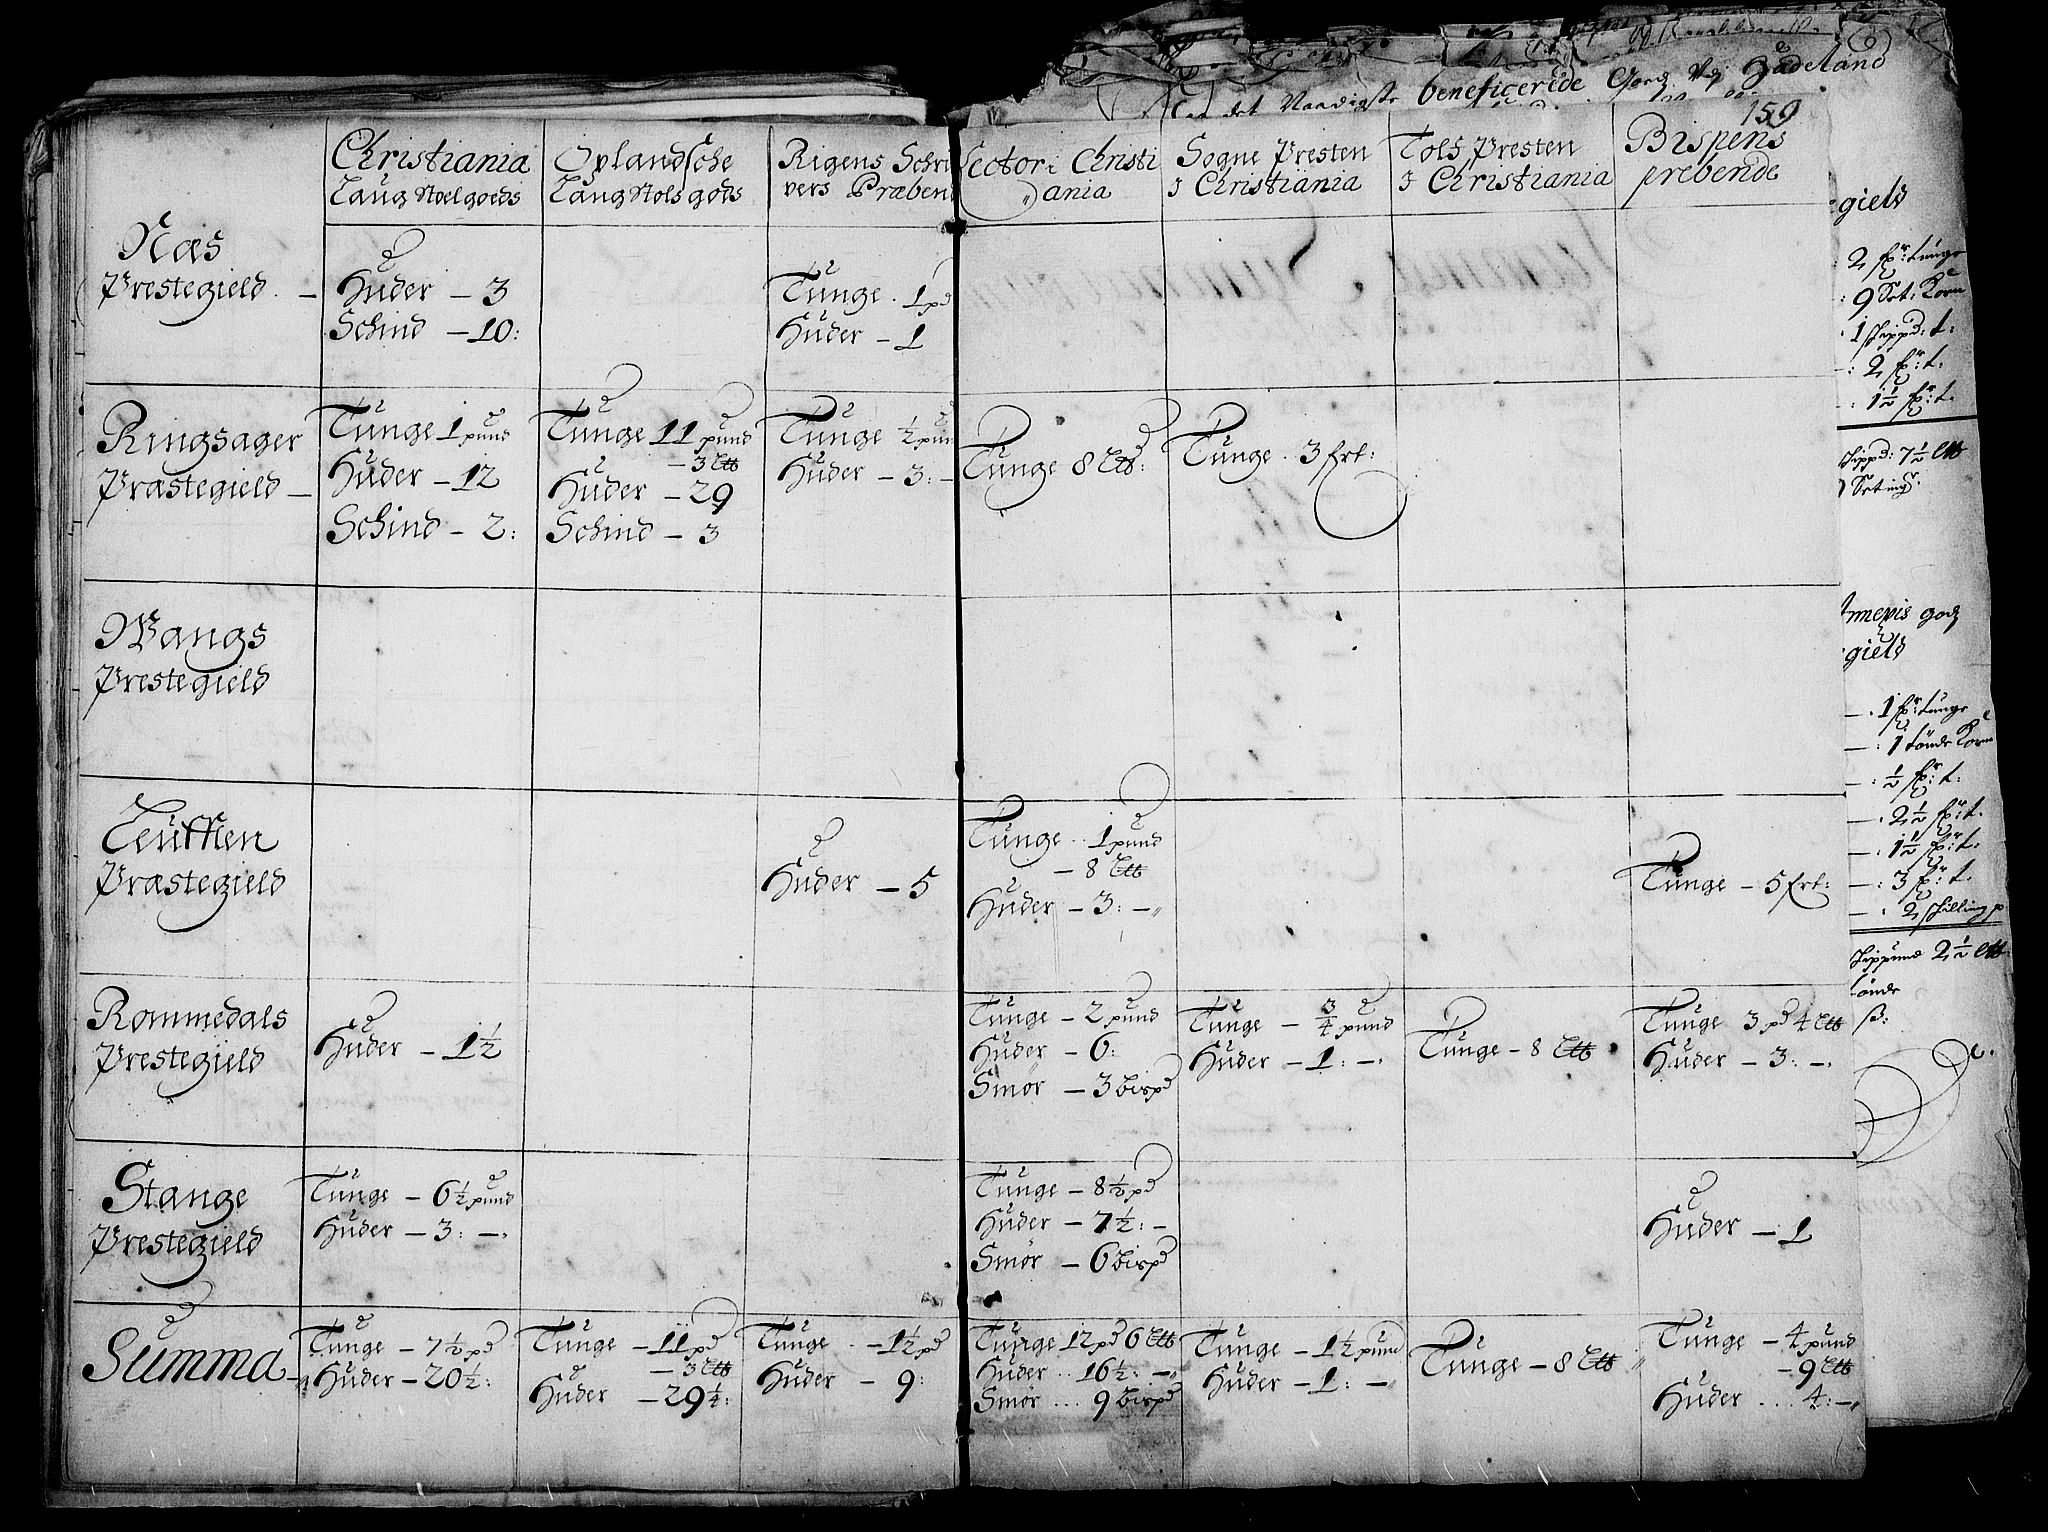 det Naadigste beneficerede Hadeland
159
Christiania
Laug Stoelgoeds
Oplandsche
Laug Stols gods
Rigens Schri
vers Præben
Lector i Christi
ania
Sogne Presten
I Christiania
Tols Presten
I Christiania
Bispens
prebende
Næs
Prestegield. –
Huder – 3
Schind – 10:
Tunge . 1 pd
Huder – 1
Ringsager
Præstegield –
Tunge 1 pund
Huder – 12
Schind – 2:
Tunge 11 pund
– 3 Ltt
Huder – 29
Schind – 3
Tunge ½ pun
Huder – 3: –
Tunge 8 Ltt:
Tunge . 3 frt:
Wangs
Prestegield
Leutten
Præstegield
Huder – 5
Tunge . . 1 pund
– 8 Ltt
Huder – 3: –
Tunge – 5 frt:
Rommedals
Prestegield
Huder – 1½
Tunge – 2 pund
Huder – 6:
Smør – 3 bispd
Tunge – ¾ pund
Huder – 1: –
Tunge – 8 Ltt
Tunge 3 pd 4 Ltt
Huder – 3: –
Stange
Prestegield
Tunge – 6½ pund
Huder – 3: –
Tunge – 8½ pd
Huder – 7½: –
Smør – 6 bispd
Huder – 1
Summa –
Tunge – 7½ pd
Huder – 20½:
Tunge – 11 pd
– 3 Ltt
Huder – 29¼:
Tunge . – 1½ pd
Huder – 9:
Tunge 12 pd 6 Ltt
Huder . . 16½: –
Smør . . . 9 bispd
Tunge – 1½ pund
Huder – 1: –
Tunge – 8 Ltt
Tunge – 4 pund
– 9 Ltt
Huder . . . . 4: –
gield
2 fr: tunge
: 9 Set: Korn
. 1 schippd: t:
: 2 fr: t.
: 1½ fr: t.
schippd: 7½ Ltt
Seting
nnexis godz
gield
– . 1 fr: tunge
– : 1 tønde Korn
– : ½ fr: t:
– . 2½ fr: t.
– : 1½ fr: t.
– : 3 fr: t.
– . 2 schilling
schippund 2½ Ltt
tønde
ß: